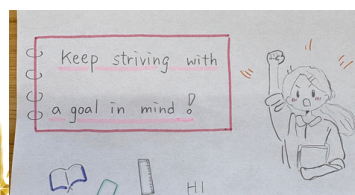 Keep striving with
a goal in mind!
HI